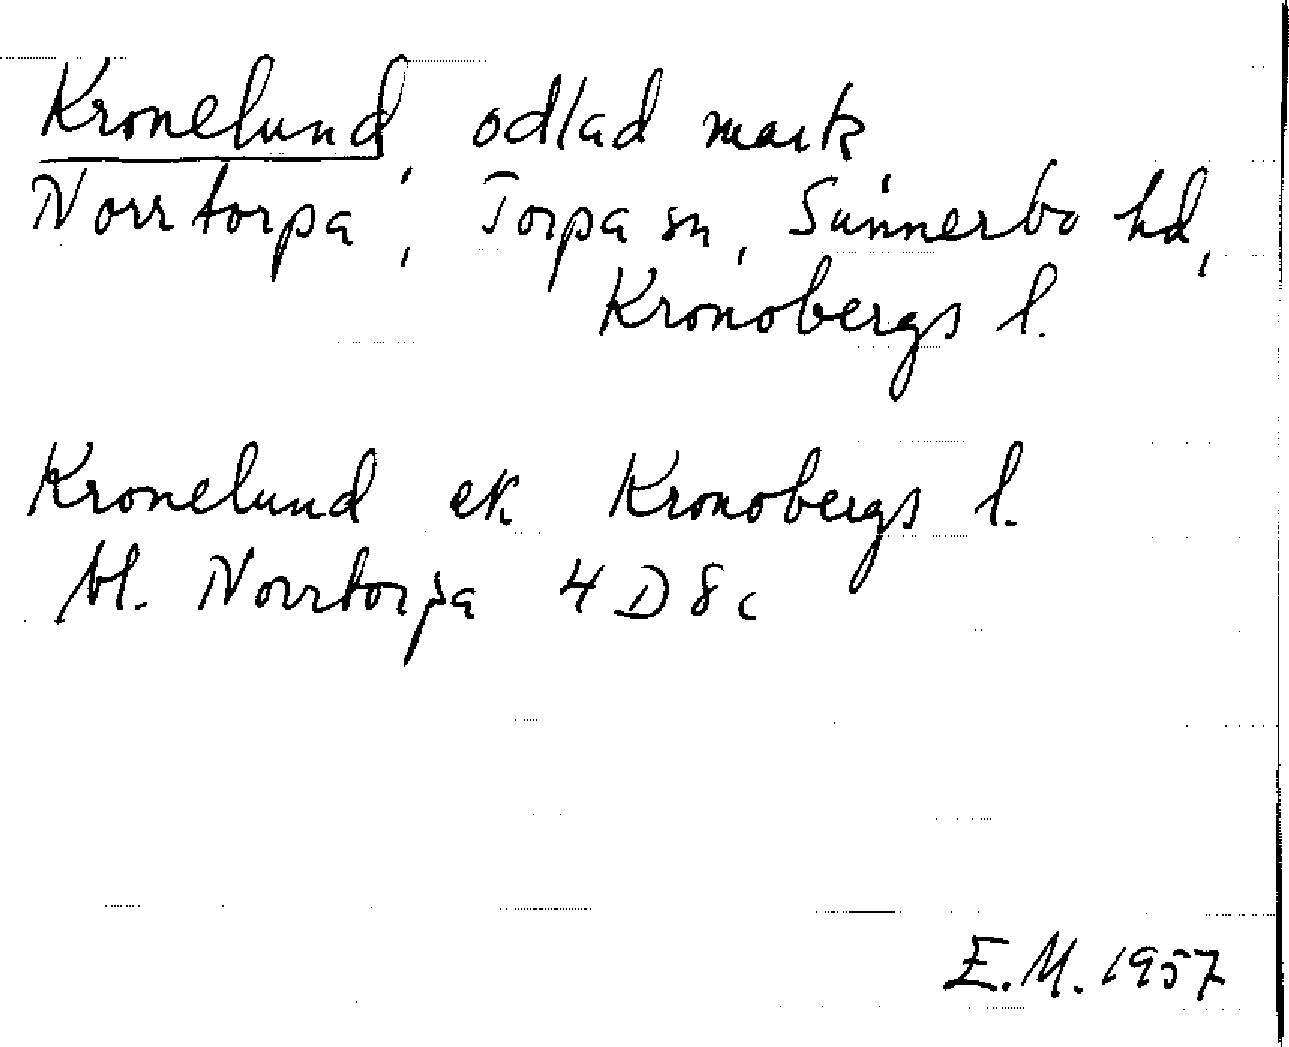 Kronelund, odlad mark
Norrtorpa, Torpa sn, Sunnerbo hd,
Kronobergs l.
Kronelund ek Kronobergs l.
bl. Norrtorpa 4D8c
E.M. 1957